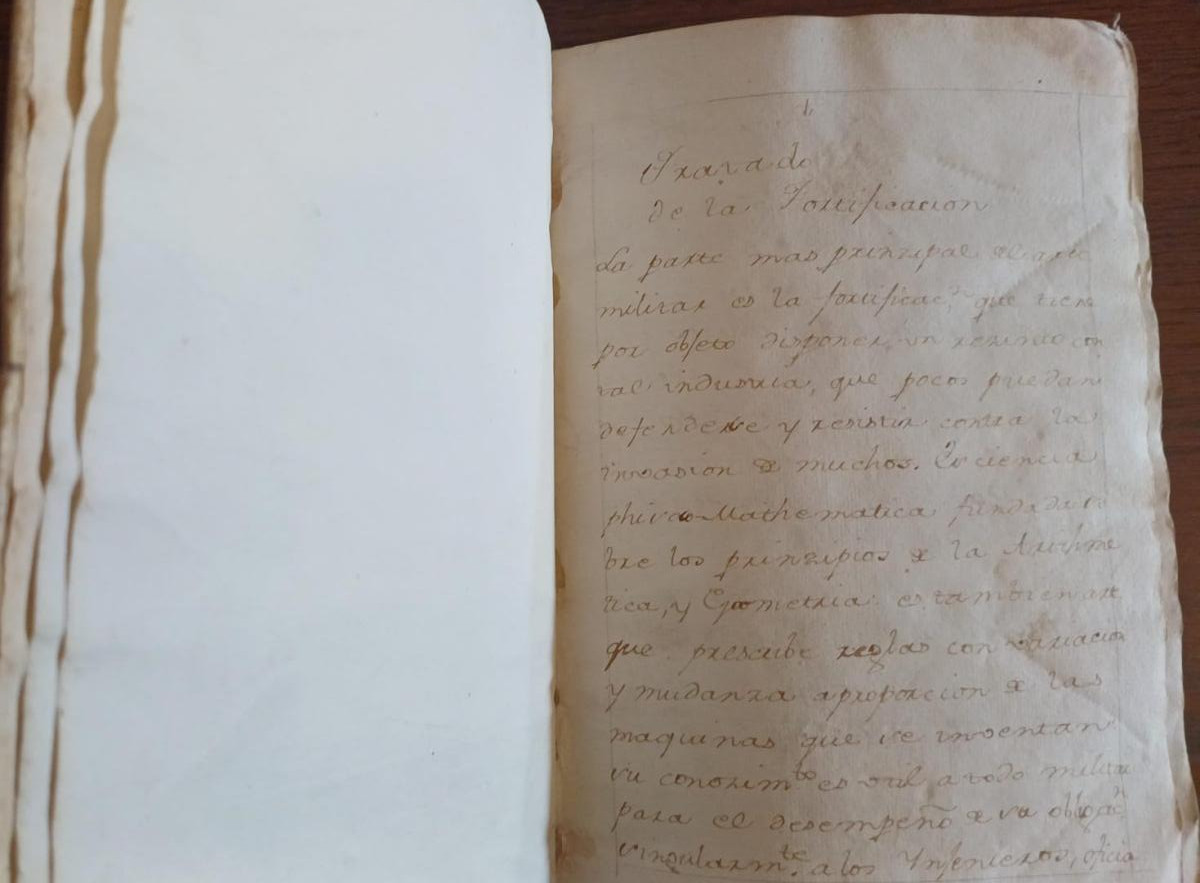 1
Tratado
de la Fortificacion
La parte mas prinzipal del arte
militar es la fortificac.n que tiene
por objeto disponer un rezinto con
tal industria, que pocos puedan
defenderse y resistir contra la
invasion de muchos. Es ciencia
phisico-Mathematica fundada so
bre los prinzipios de la Arithme
tica, y Geometria: es tambien arte
que prescribe reglas con variacion
y mudanza a proporcion de las
maquinas que se inventan
su conozim.to es util a todo militar
para el desempeño de su obligac.n
singularm.te a los Ynjenieros, oficia